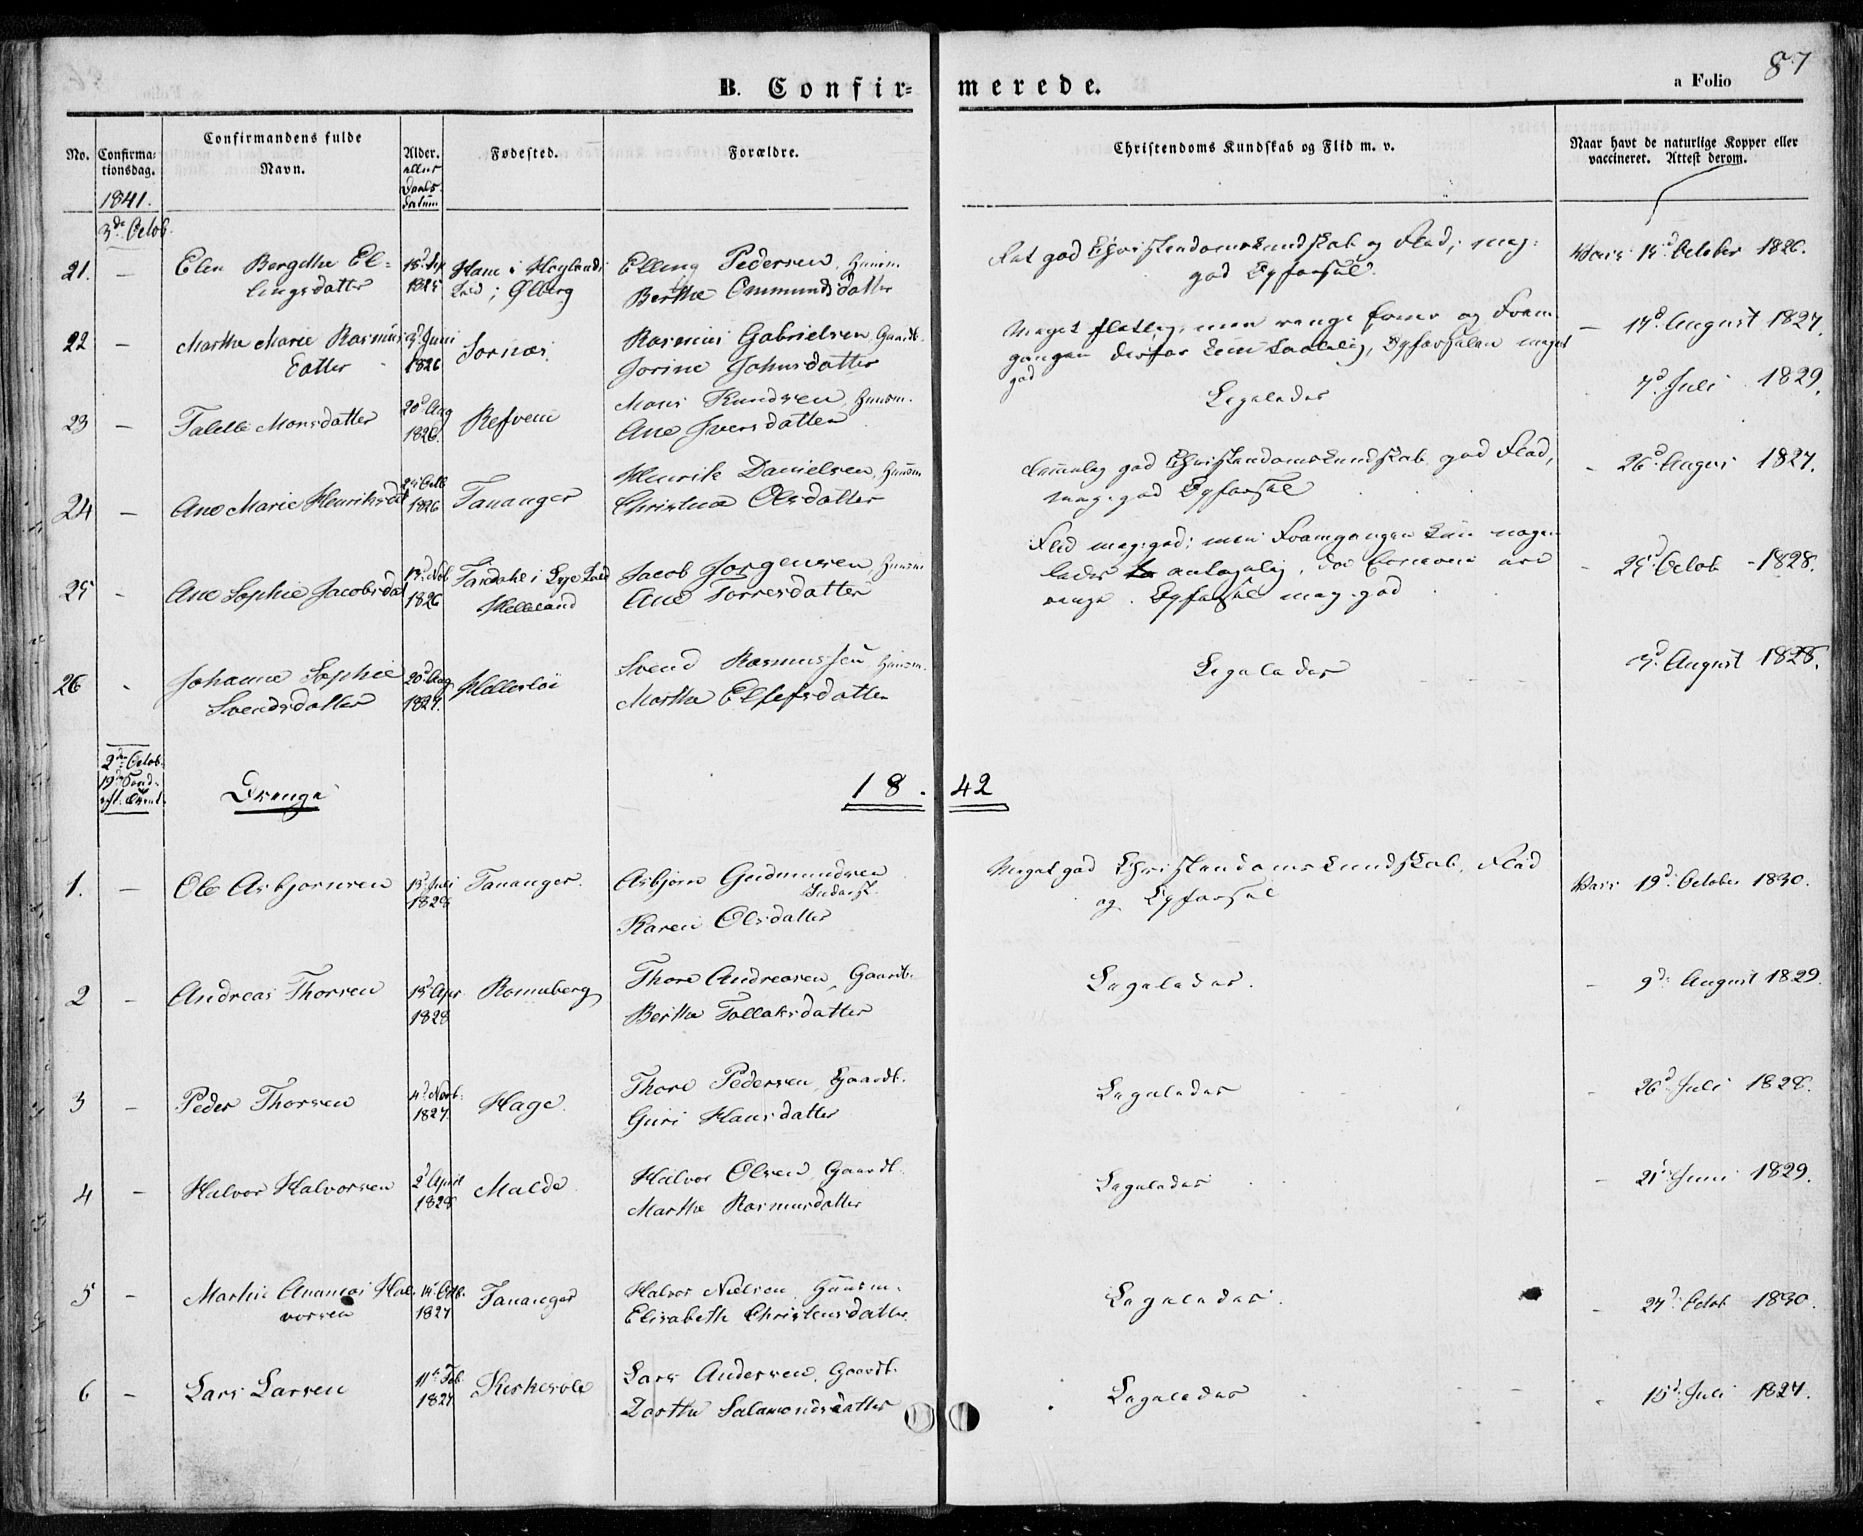 87
B. Confir=merede. a Folio
No. Confirma=tionsdag. Confirmandens fulde Navn. Alder. Fødested. Forældre. Christendoms Kundskab og Flid m. v. Naar havt de naturlige Kopper eller vaccineret. Attest derom.
eller Daabs Datum
1841.
3de Octob.
21. — Elen Bergethe El=
lingsdatter
1825
Elling Pedersen, Huusm.
Berthe Ommundsdatter
god Christendomskundskab og Flid; meg:
god Opførsel.
October 1826.
22 — Martha Marie Rasmus
Datter
Juni
1826
Sørnæs
Rasmus Gabrielsen Gaardb.
Jorine Johnsdatter
Meget flittig, men ringe Evner og Frem
gangen derfor kun taalelig, Opførselen meget
god
— 17d August 1827.
23 — Talette Monsdatter
20d Aug
1826.
Refvem
Mons Knudsen, Huusm.
Ane Iversdatter
Ligeledes
7d Juli 1829.
24 — Ane Marie Henriksdat
1826
Tananger
Henrik Danielsen, Huusm
Christine Olsdatter
god Christendomskundskab, god Flid,
meg: god Opførsel
- 26d August 1827.
25 - Ane Sophie Jacobsdat
13d Nob
1826
Helleland
Jacob Jørgensen, Huusm.
Ane Torresdatter
Flid meg: god; men Fremgangen kun nogen
ledes antagelig, da Evnerne are
ringe. Opførsel meg. god
- 25d Octob - 1828.
26 - Johanne Sophie
Svendsdatter
20d Aug
1827.
Svend Rasmussen, Huusm.
Martha Ellefsdatter
Ligeledes
August 1828.
2den Octob.
19de Sønd=
eft. Trinit.
Drenge
18.42
1. — Ole Asbjørnsen
13d Juli
1828
Tananger.
Asbjørn Gudmundsen
Karen Olsdatter
Meget god Christendomskundskab, Flid
og Opførsel
19d October 1830.
2 — Andreas Thorsen
13d Apr.
1828
Rommeberg
Thore Andreasen, Gaardb.
Berthe Tollaksdatter
Ligeledes.
- 9d August 1829.
3 — Peder Thorsen
4d Novb.
1827
Hage.
Thore Pedersen, Gaardb.
Guri Hansdatter
Ligeledes
- 26d Juli 1828.
4 — Halvor Halvorsen
2d April
1828
Malde
Halvor Olsen, Gaardb.
Marthe Rasmusdatter
Ligeledes
- 21d Juni 1829.
5 — Martin Ananias Hal=
vorsen
14d Octb.
1827
Tananger
Halvor Nielsen, Huusm.
Elisabeth Christensdatter
Ligeledes.
- 27d Octob 1830.
6 — Lars Larsen
11d Feb
1827
Kirkesole
Lars Andersen, Gaardb.
Dorthe Salamonsdatter
Ligeledes
- 15d Juli 1827.